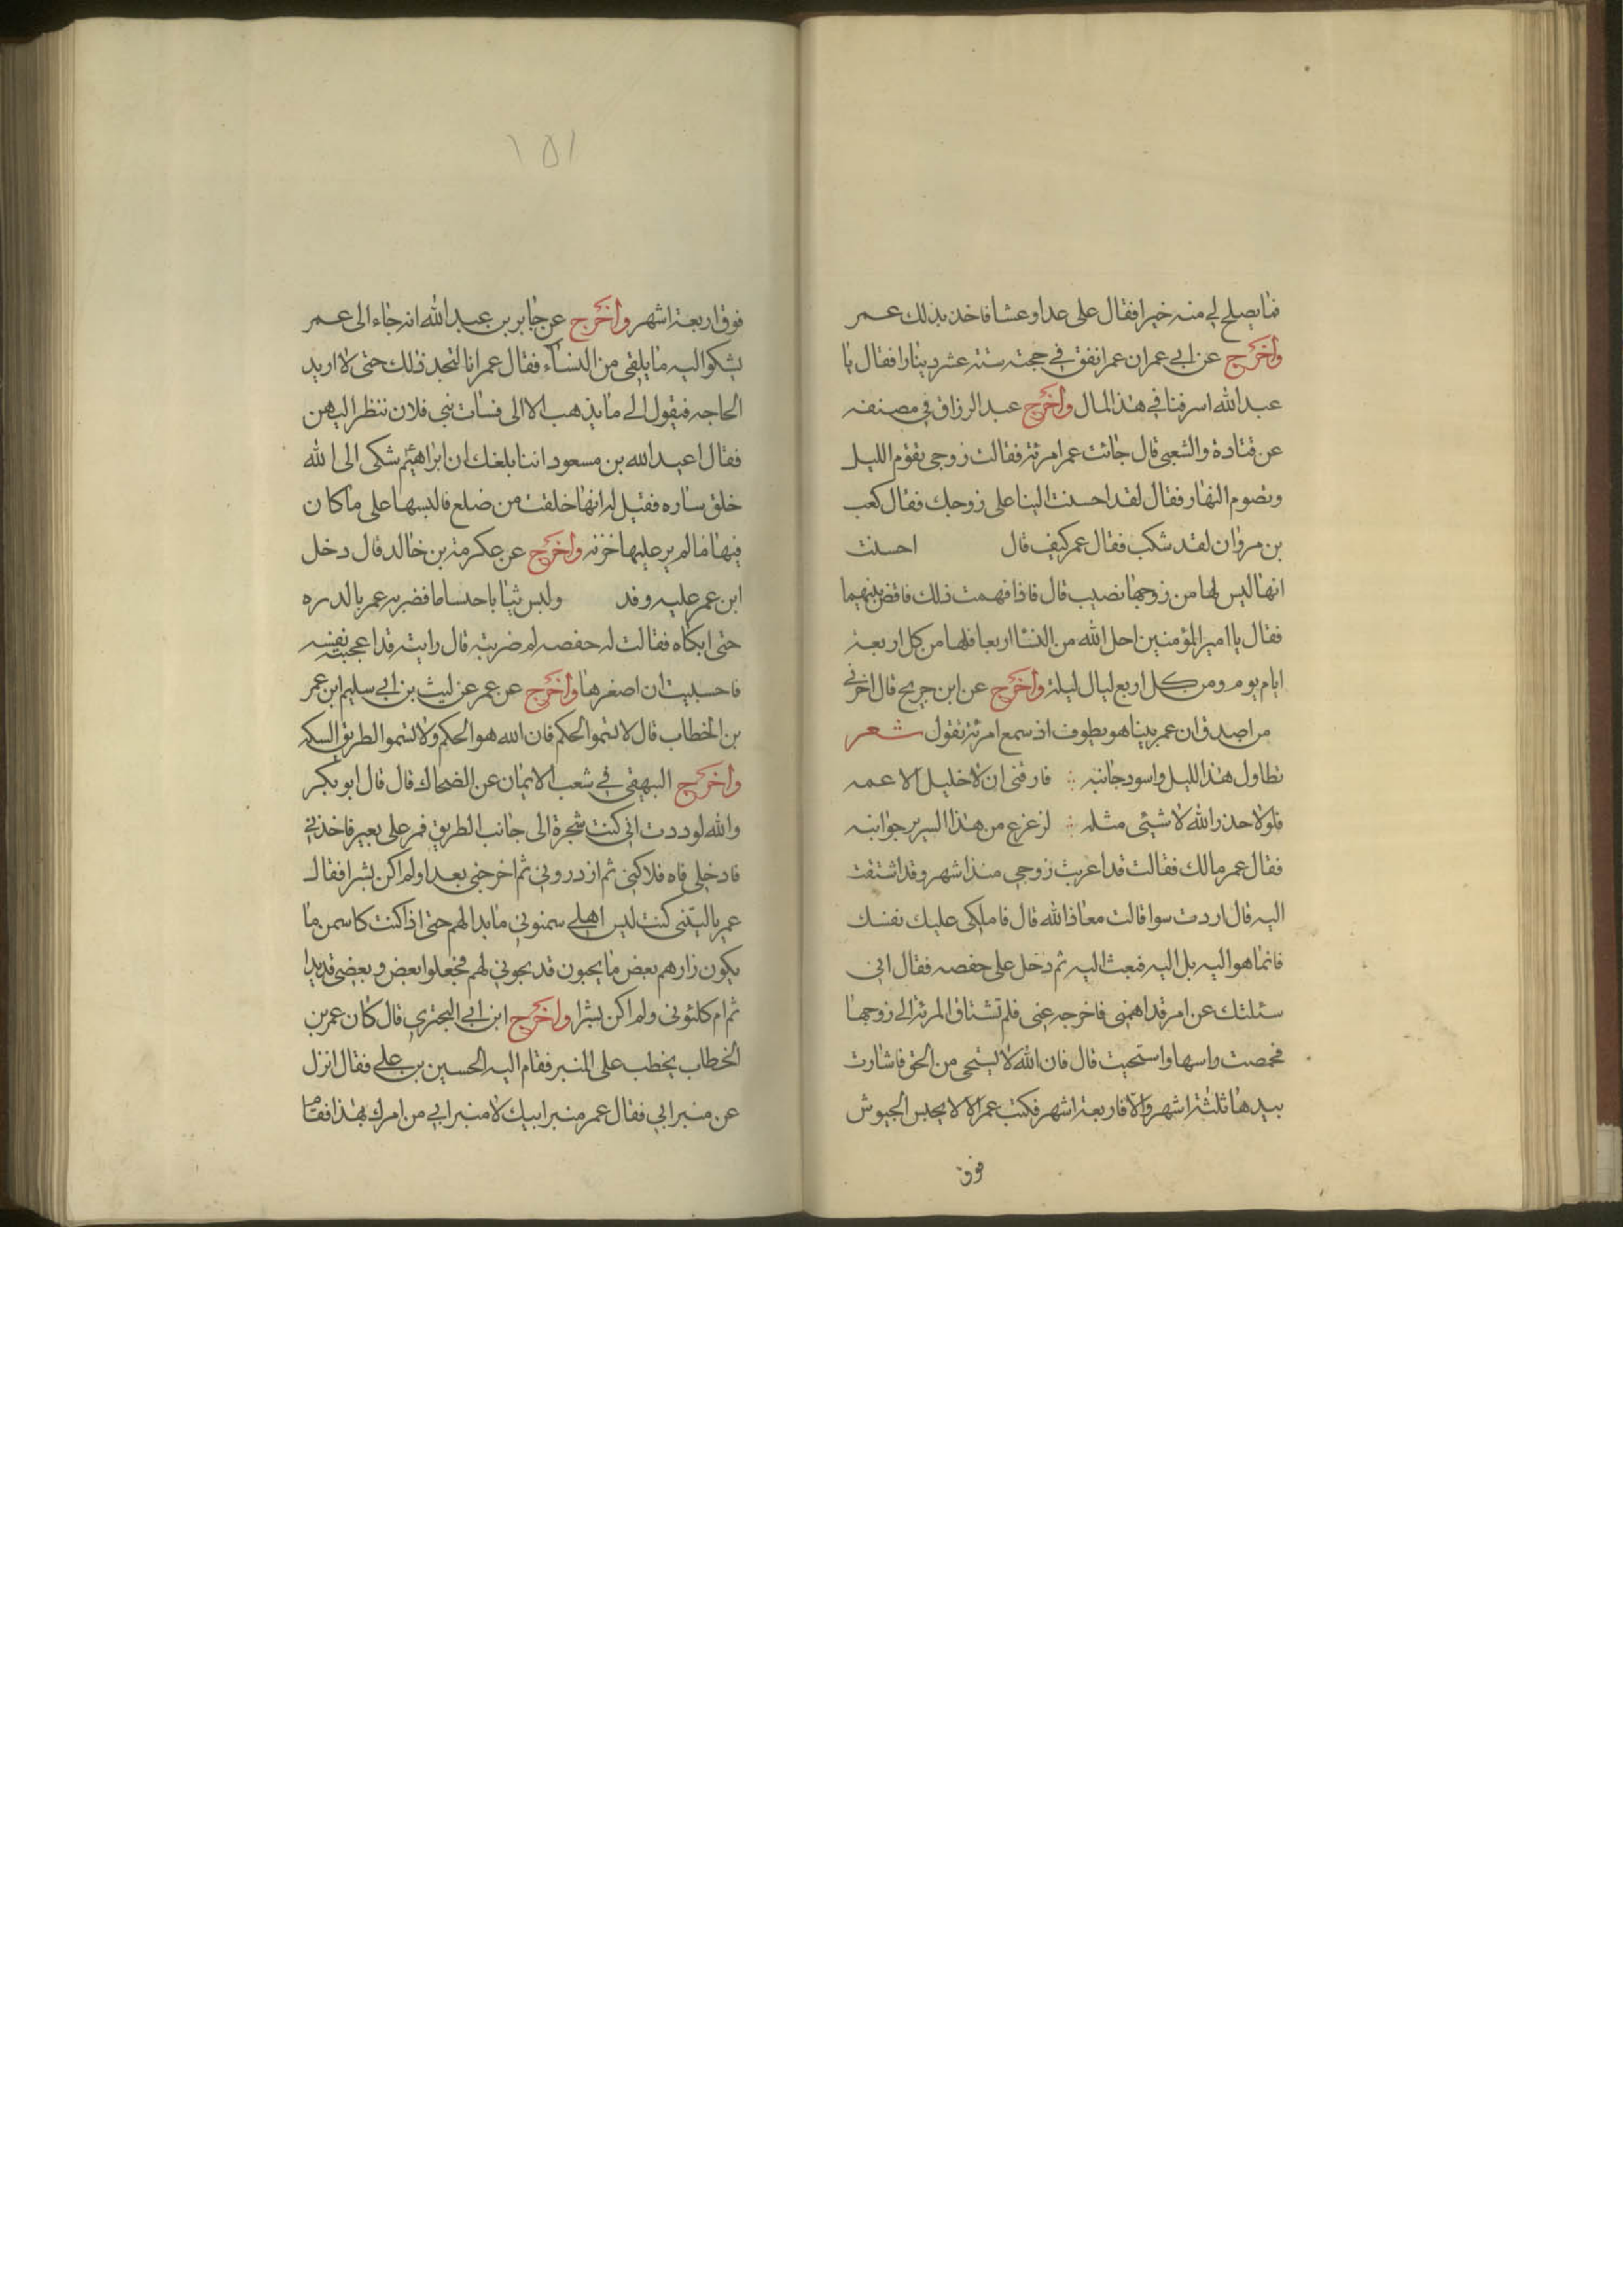 فما يصلح لي منه خيرا فقال على غدا وعشا فاخذ بذلك عمر
واخرج عن ابي عمران عمر انفق في حجته ستة عشر دينارا فقال يا
عبد الله اسرفنا في هذا المال واخرج عبد الرزاق في مصنفه
عن قتادة والشعبي قال جائت عمر امرئة فقالت زوجي يقوم الليل
ويصوم النهار فقال لقد احسنت الينا على زوجك فقال كعب
بن مروان لقد شكب فقال عمر كيف قال احسنت
انها ليس لها من زوجها نصيب قال فاذا فهمت ذلك فاقض بينهما
فقال يا امير المؤمنين احل الله من النسا اربعا فلها من كل اربعة
ايام يوم ومن كل اربع ليال ليلة واخرج عن ابن جريح قال اخرني
من اصدق ان عمر بينا هو يطوف اذ سمع امرئة تقول شعر
تطاول هذا الليل واسود جانبه فارقنى ان لا خليل الاعمه
فلولا حذر الله لا شيئى مثله لزعزع من هذا السرير جوانبه
فقال عمر مالك فقالت قد اغربت زوجي منذ اشهر وقد اشتقت
اليه قال اردت سوا قالت معاذ الله قال فاملكى عليك نفسك
فانما هو اليه بل اليه فبعث اليه ثم دخل على حفصه فقال اني
سئلتك عن امر قد اهمنى فاخرجه عنى فلم تشتاق المرئة الى زوجها
فخمصت واسها واستحيت قال فان الله لا يستحى من الحق فاشارت
بيدها ثلثة اشهر والا فاربعة اشهر فكتب عمر الا لا يحبس الجيوش
فوق
١٥١
فوق اربعة اشهر واخرج عن جابر بن عبد الله انه جاء الى عمر
يشكوا اليه ما يلقى من النساء فقال عمر انا لنجد ذلك حتى لا اريد
الحاجه فيقول لي ما يذهب الا الى فسات بنى فلان ننظر اليهن
فقال اعبد الله بن مسعود اننا بلغك ان ابراهيم شكى الى الله
خلق ساره فقيل له انها خلقت من ضلع فالبسها على ما كان
فيها ما لم ير عليها خزنه واخرج عن عكرمة بن خالد قال دخل
ابن عمر عليه وقد ولبس ثيابا حسا ما فضربه عمر بالدره
حتى ابكاه فقالت له حفصه لم ضربته قال رايته قد اعجبته نفسه
فاحسبيت ان اصغرها واخرج عن عمر عن ليث بن ابي سليم ابن عمر
بن الخطاب قال لا تسموا الحكم فان الله هو الحكم ولا تسموا الطريق السكه
واخرج البيهقى في شعب الايمان عن الضحاك قال قال ابو بكر
والله لوددت انى كنت شجرة الى جانب الطريق فمر على بعير فاخذني
فادخلى فاه فلاكنى ثم ازدروني ثم اخرجنى بعدا ولم اكن بشرا فقال
عمر ياليتنى كنت ليس اهلي سمنونى ما بدا لهم حتى اذا كنت كاسمن ما
يكون زارهم بعض ما يحبون قد بحوني لهم فجعلوا بعض وبعضى قديدا
ثم ام كلئونى ولم اكن بشرا واخرج ابن ابي البحترى قال كان عمر بن
الخطاب يخطب على المنبر فقام اليه الحسين بن علي فقال انزل
عن منبر ابي فقال عمر منبر ابيك لا منبر ابي من امرك بهذا فقام